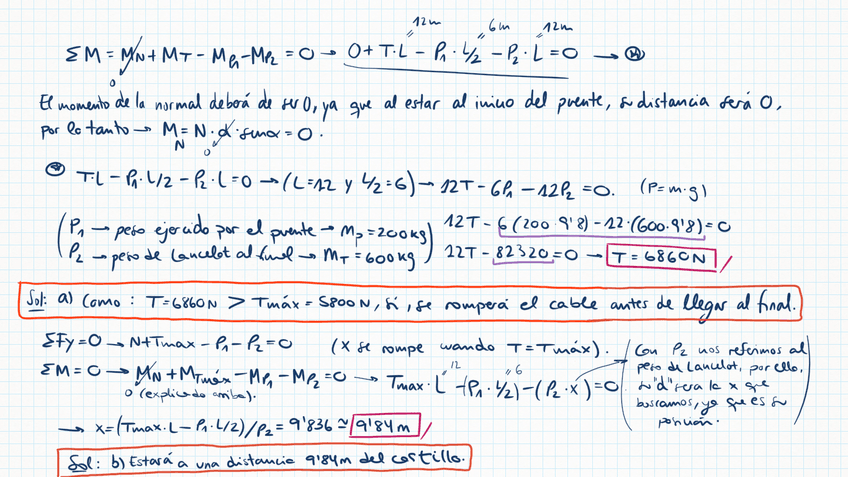 12m 6m 12m
ΣM = M_N + M_T − M_P1 − M_P2 = 0 → 0 + T·L − P₁·L/2 − P₂·L = 0 → (*)
0
El momento de la normal deberá de ser 0, ya que al estar al inicio del puente, su distancia será 0,
por lo tanto → M_N = N·d·sinα = 0.
0
(*) T·L − P₁·L/2 − P₂·L = 0 → (L=12 y L/2=6) → 12T − 6P₁ − 12P₂ = 0. (P=m·g)
(P₁ → peso ejercido por el puente → M_P = 200kg
P₂ → peso de Lancelot al final → M_T = 600kg)
12T − 6(200·9'8) − 12·(600·9'8) = 0
12T − 82320 = 0 → T = 6860N
Sol: a) Como: T=6860N > Tmáx = 5800N, sí, se romperá el cable antes de llegar al final.
ΣFy = 0 → N + Tmax − P₁ − P₂ = 0 (X se rompe cuando T = Tmáx).
ΣM = 0 → M_N + M_Tmáx − M_P1 − M_P2 = 0 → Tmax·L − (P₁·L/2) − (P₂·x) = 0
12 6
0 (explicado arriba).
(Con P₂ nos referimos al
peso de Lancelot, por ello,
su "d" sera la x que
buscamos, ya que es su
posición.)
→ x = (Tmax·L − P₁·L/2)/P₂ = 9'836 ≃ 9'84m
Sol: b) Estará a una distancia 9'84m del castillo.